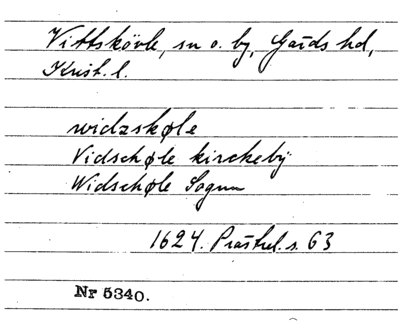 Vittskövle, sn o. by, Gärds hd,
Krist. l.
widzskøle
Vidschøle kirckebÿ
Widschøle Sognn
1624. Prästrel. s. 63
Nr 5340.